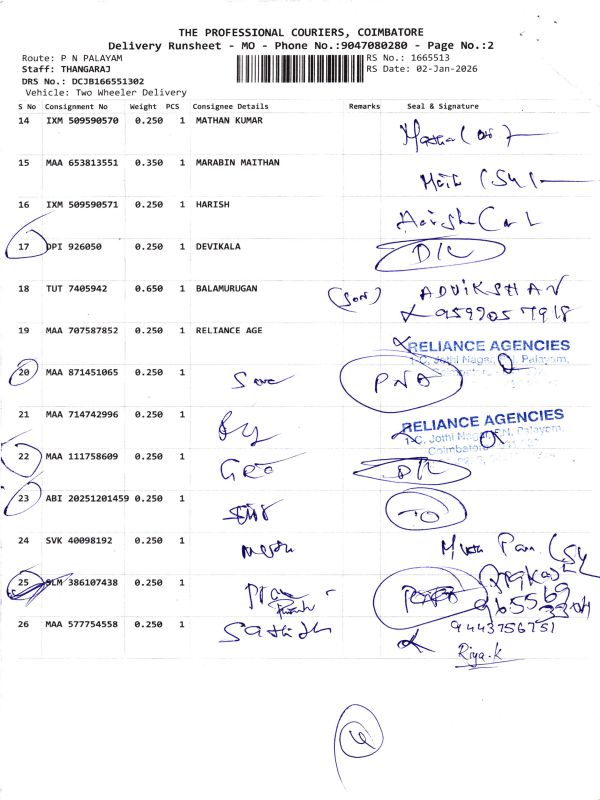 THE PROFESSIONAL COURIERS, COIMBATORE
Delivery Runsheet - MO - Phone No.:9047080280 - Page No.:2
Route: P N PALAYAM
RS No.: 1665513
Staff: THANGARAJ
RS Date: 02-Jan-2026
DRS No.: DCJB166551302
Vehicle: Two Wheeler Delivery
S No Consignment No Weight PCS Consignee Details Remarks Seal & Signature
14 IXM 509590570 0.250 1 MATHAN KUMAR
15 MAA 653813551 0.350 1 MARABIN MAITHAN
16 IXM 509590571 0.250 1 HARISH
17 DPI 926050 0.250 1 DEVIKALA D/L
18 TUT 7405942 0.650 1 BALAMURUGAN (Son) ADVIKSHAN
19 MAA 707587852 0.250 1 RELIANCE AGE
RELIANCE AGENCIES
1-C, Jothi Nagar, P.N. Palayam,
Coimbatore
20 MAA 871451065 0.250 1
21 MAA 714742996 0.250 1
RELIANCE AGENCIES
1-C, Jothi Nagar, P.N. Palayam,
Coimbatore
22 MAA 111758609 0.250 1 D/L
23 ABI 20251201459 0.250 1 TO
24 SVK 40098192 0.250 1
25 SLM 386107438 0.250 1 Prakash
26 MAA 577754558 0.250 1 Sathish 9443756751
Riya.K